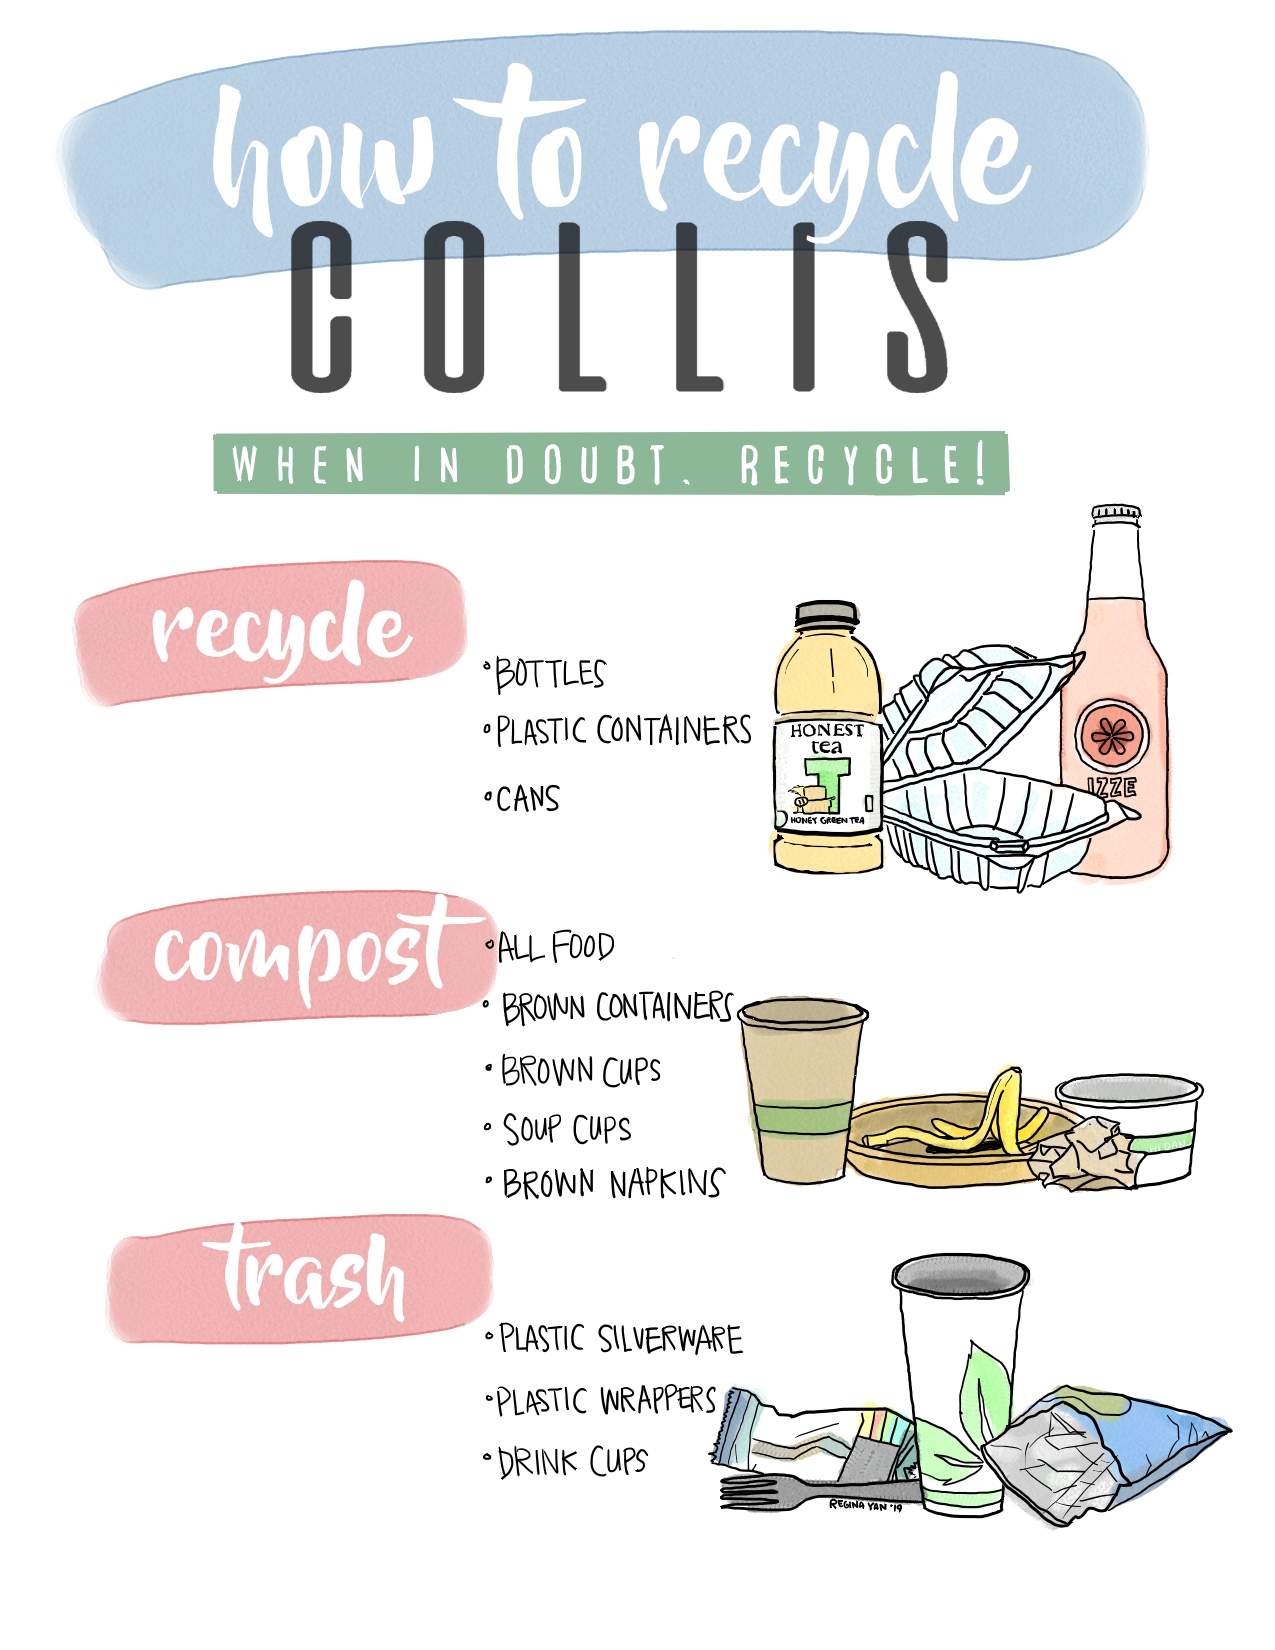 how to recycle
COLLIS
WHEN IN DOUBT, RECYCLE!
recycle
°BOTTLES
°PLASTIC CONTAINERS
°CANS
HONEST
tea
T
HONEY GREEN TEA
IZZE
compost
°ALL FOOD
° BROWN CONTAINERS
° BROWN CUPS
° SOUP CUPS
° BROWN NAPKINS
trash
°PLASTIC SILVERWARE
°PLASTIC WRAPPERS
°DRINK CUPS
REGINA YAN '19